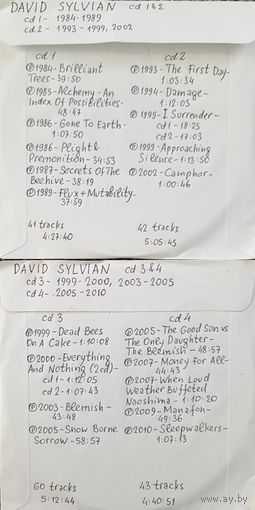 DAVID SYLVIAN cd 1 & 2
cd 1 - 1984-1989
cd 2 - 1993-1999, 2002
cd 1
℗1984-Brilliant
Trees-39:50
℗1985-Alchemy-An
Index Of Possibilities-
48:47
℗1986-Gone To Earth-
1:07:50
℗1986-Plight &
Premonition-34:53
℗1987-Secrets Of The
Beehive-38:19
℗1989-Flux + Mutability-
37:59
41 tracks
4:27:40
cd 2
℗1993-The First Day-
1:03:34
℗1994-Damage-
1:12:05
℗1999-I Surrender-
cd 1 - 18:25
cd 2 - 17:03
℗1999-Approaching
Silence-1:13:50
℗2002-Camphor-
1:00:46
42 tracks
5:05:45
DAVID SYLVIAN cd 3 & 4
cd 3 - 1999-2000, 2003-2005
cd 4 - 2005-2010
cd 3
℗1999-Dead Bees
On A Cake-1:10:08
℗2000-Everything
And Nothing (2cd)-
cd 1 - 1:12:05
cd 2 - 1:07:43
℗2003-Blemish-
43:48
℗2005-Snow Borne
Sorrow-58:57
60 tracks
5:12:44
cd 4
℗2005-The Good Son vs
The Only Daughter-
The Blemish-48:57
℗2007-Money For All-
44:43
℗2007-When Loud
Weather Buffeted
Naoshima-1:10:20
℗2009-Manafon-
49:36
℗2010-Sleepwalkers-
1:07:13
43 tracks
4:40:51
www.ay.by